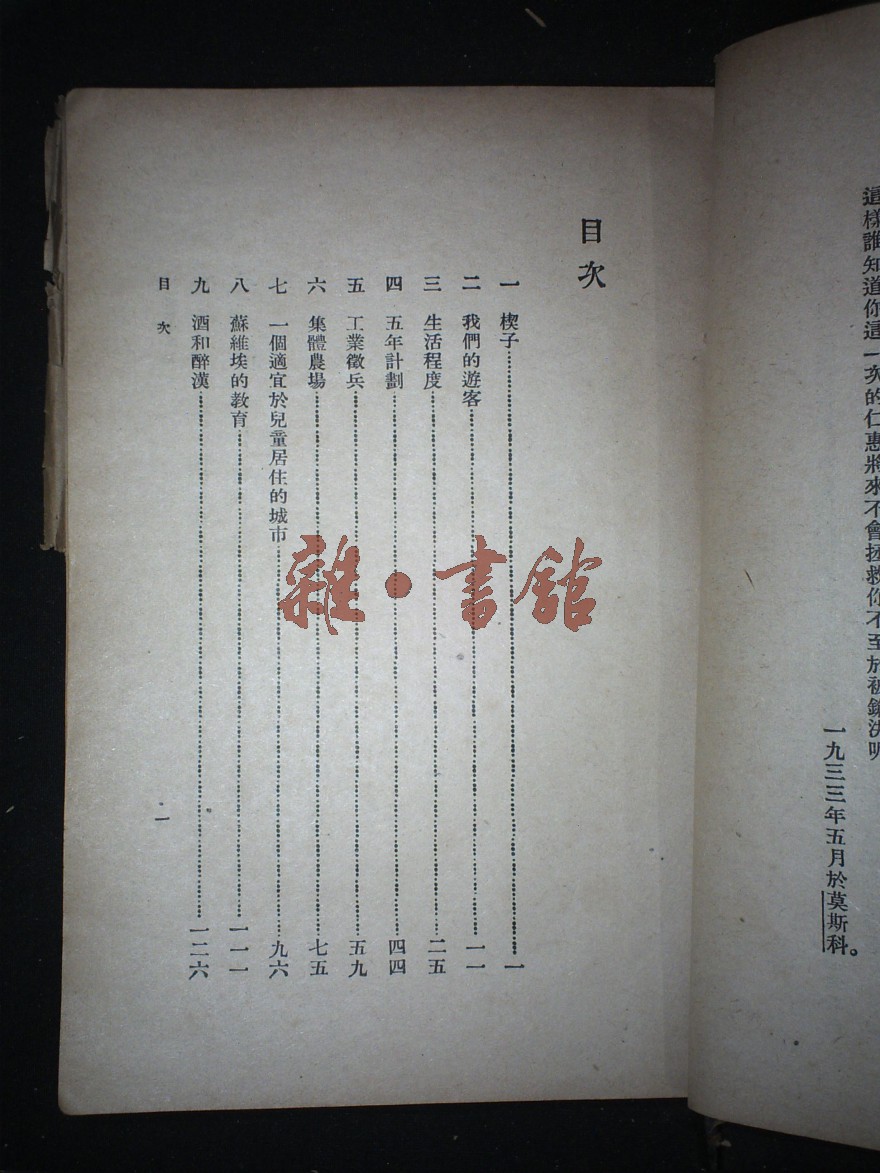 這樣誰知道你這一次的仁惠將來不會拯救你不至於被鎗決呢
一九三三年五月於莫斯科。
目次
一 楔子 一
二 我們的遊客 一一
三 生活程度 二五
四 五年計劃 四四
五 工業徵兵 五九
六 集體農場 七五
七 一個適宜於兒童居住的城市 九六
八 蘇維埃的教育 一一一
九 酒和醉漢 一二六
目次
一
雜·書館